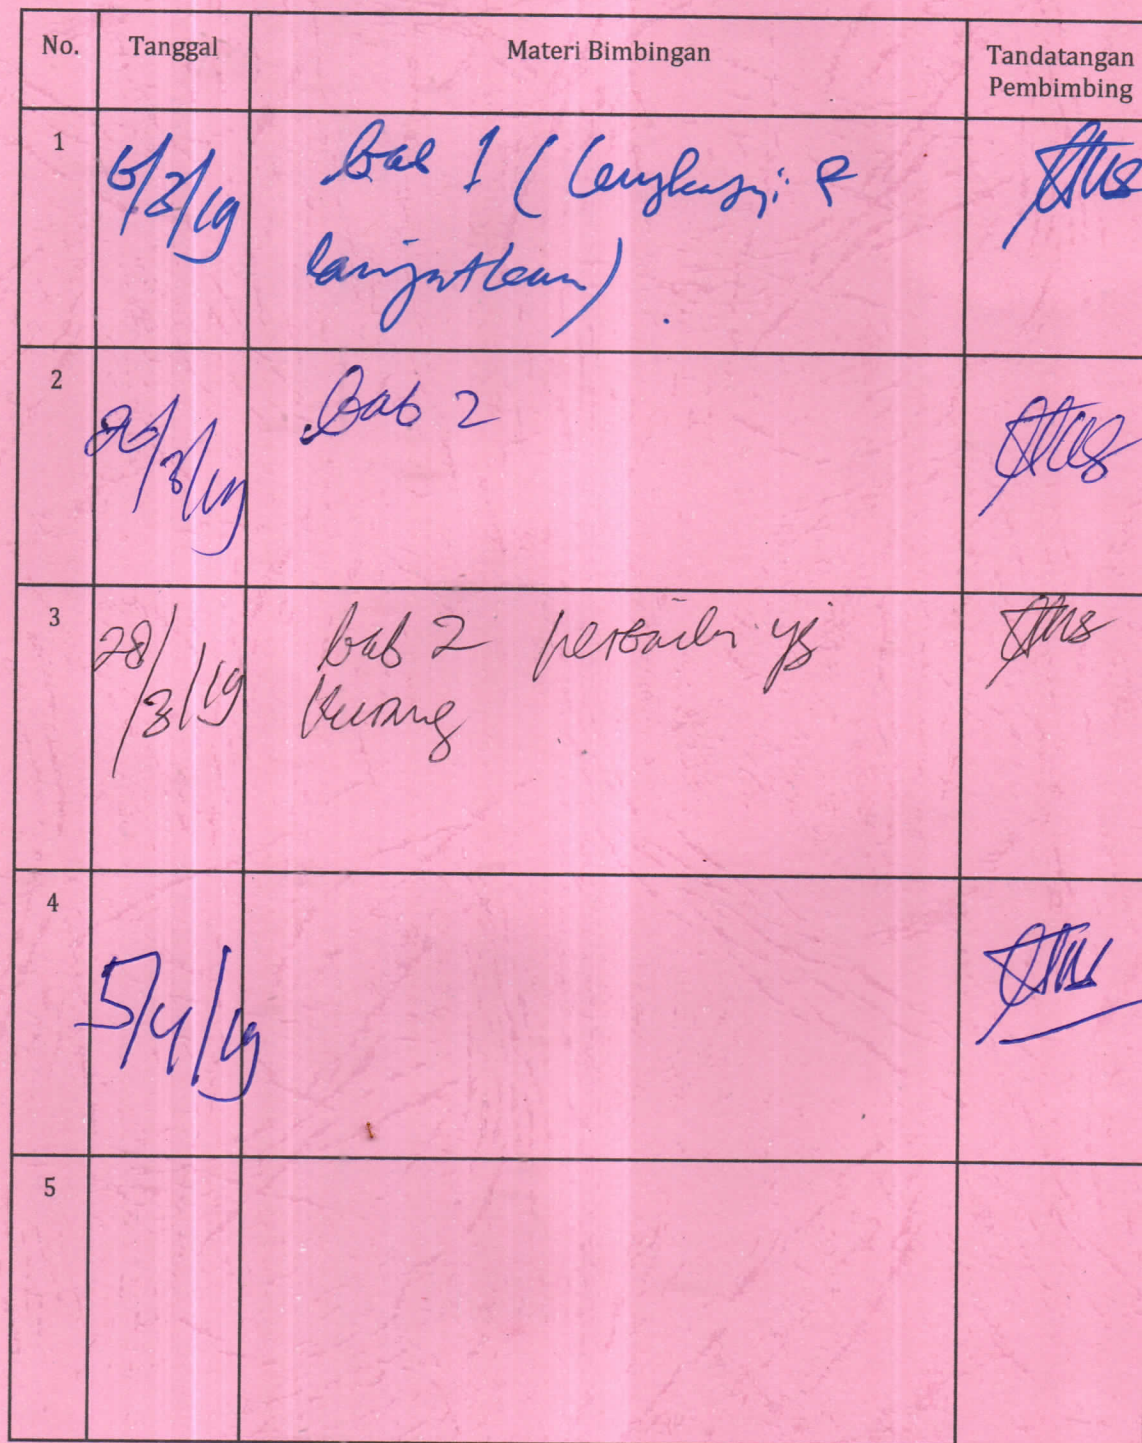 No. Tanggal Materi Bimbingan Tandatangan
Pembimbing
1 6/3/19 bab 1 (lengkapi &
lanjutkan)
2 26/3/19 bab 2
3 28/3/19 bab 2 perbaiki yg
kurang
4 5/4/19
5